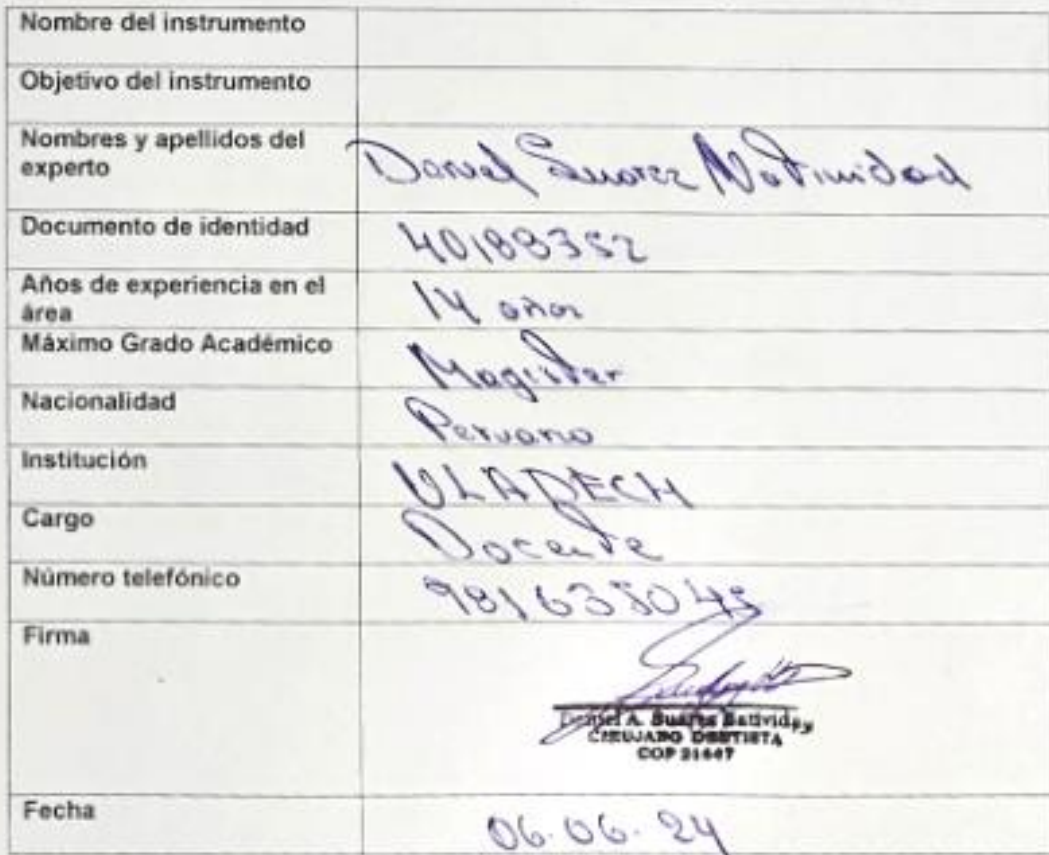 Nombre del instrumento
Objetivo del instrumento
Nombres y apellidos del
experto
Daniel Suarez Natividad
Documento de identidad
40189352
Años de experiencia en el
área
14 años
Máximo Grado Académico
Magister
Nacionalidad
Peruano
Institución
ULADECH
Cargo
Docente
Número telefónico
981635045
Firma
Daniel A. Suarez Natividad
CIRUJANO DENTISTA
COP 21667
Fecha
06.06.24